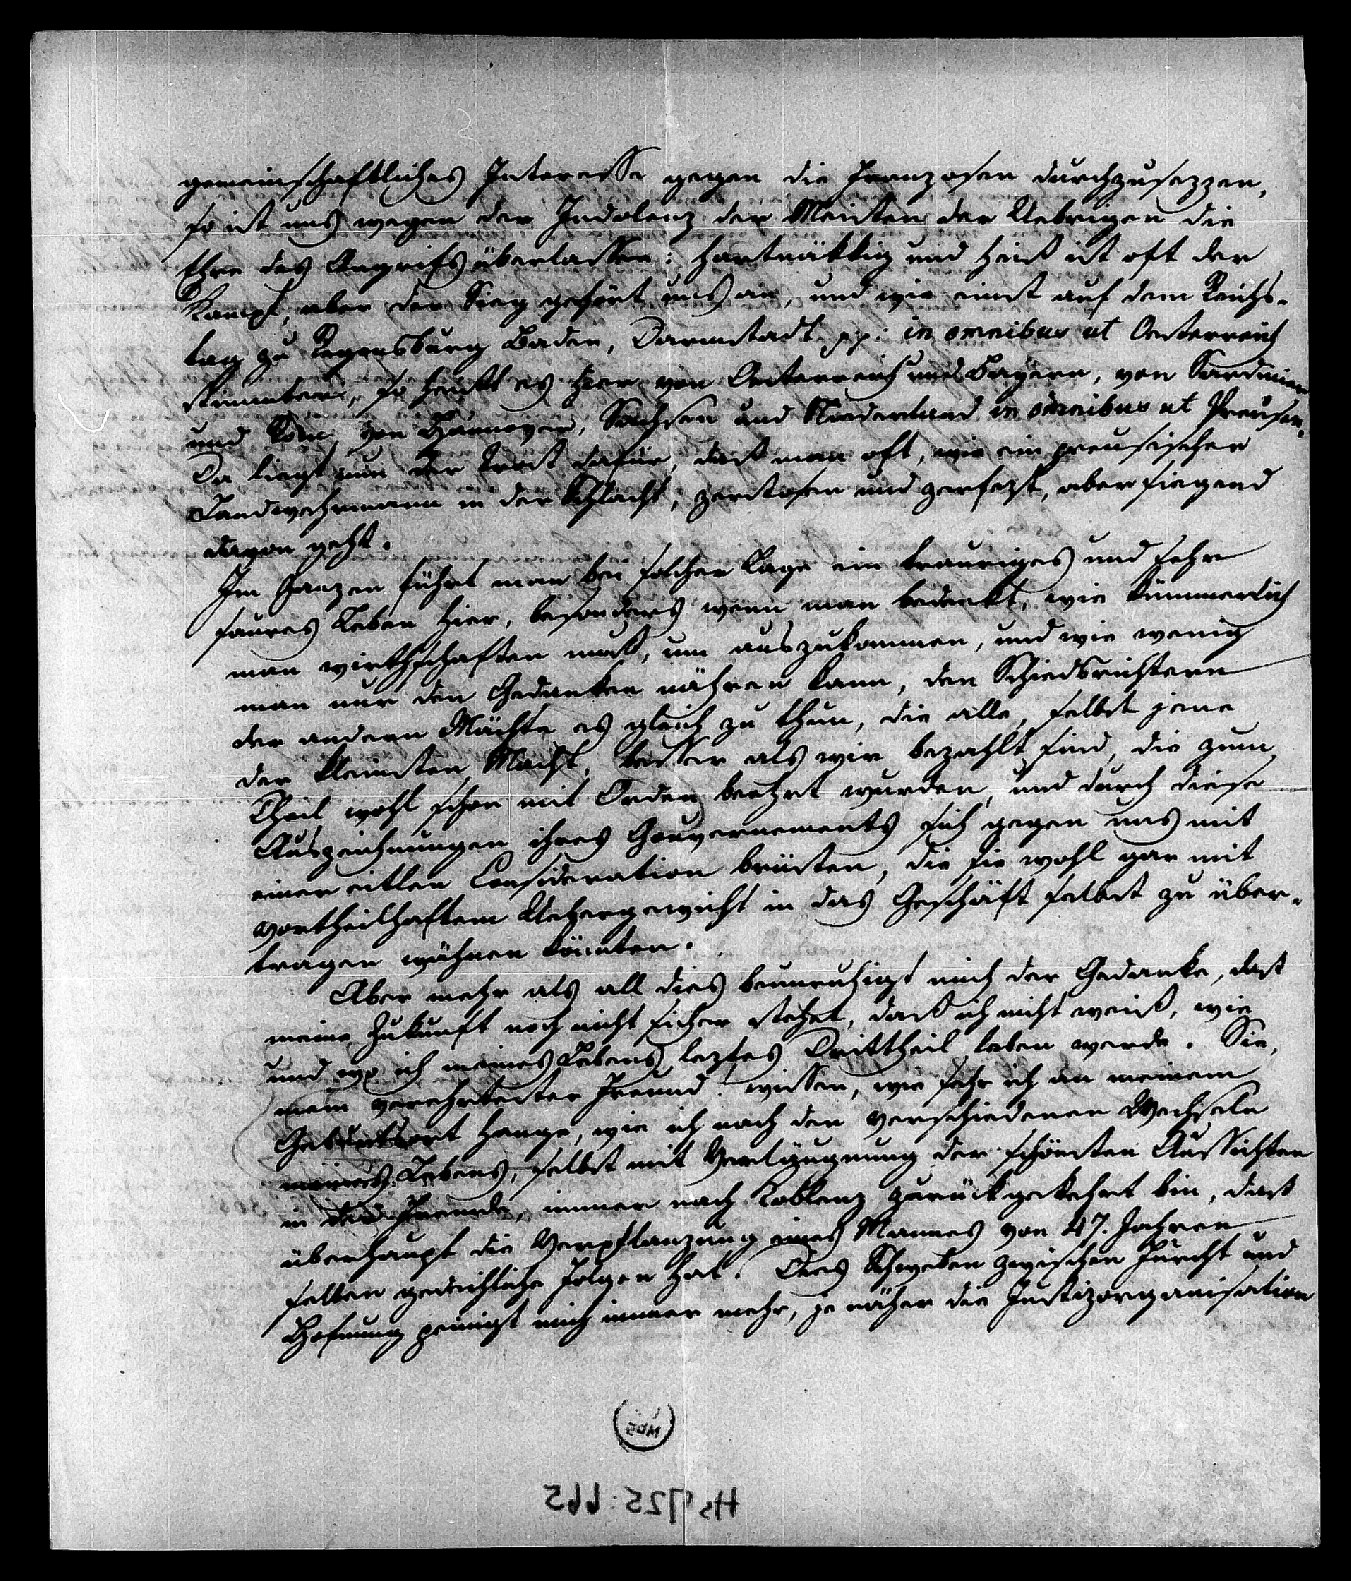 gemeinschaftliches Interesse gegen die Franzosen durchzusezzen,
so ist uns wegen der Indolenz der Meisten der Uebrigen die
Ehre des Angrifs überlassen: hartnäkkig und heiß ist oft der
Kampf, aber der Sieg gehört uns an, und wie einst auf dem Reichs-
tag zu Regensburg Baden, Darmstadt pp: in omnibus ut Oesterreich
stimmten, so heißt es hier von Oesterreich und Bayern, von Sardinien
und Rom, von Hannover, Sachsen und Niederland in omnibus ut Preusen.
Da liegt nun der Trost dafür, daß man oft, wie ein preusischer
Landwehrmann in der Schlacht, zerstosen und zerfezt, aber siegend
davon geht.
Im Ganzen führt man bei solcher Lage ein trauriges und sehr
saures Leben hier, besonders wenn man bedenkt, wie kümmerlich
man wirthschaften muß, um auszukommen, und wie wenig
man nur den Gedanken nähren kann, den Schiedsrichtern
der andern Mächte es gleich zu thun, die alle, selbst jene
der kleinsten Macht, besser als wir bezahlt sind, die zum
Theil wohl schon mit Orden beehrt wurden, und durch diese
Auszeichnungen ihres Gouvernements sich gegen uns mit
einer eitlen Consideration brüsten, die sie wohl gar mit
vortheilhaftem Uebergewicht in das Geschäft selbst zu über-
tragen wähnen könnten.
Aber mehr als all dies beunruhigt mich der Gedanke, daß
meine Zukunft noch nicht sicher stehet, daß ich nicht weiß, wie
und wo ich meines Lebens leztes Drittheil leben werde. Sie,
mein verehrtester Freund! wissen, wie sehr ich an meinem
Geburtsort hange, wie ich nach den verschiedenen Wechseln
meines Lebens, selbst mit Verläugnung der schönsten Aussichten
in der Fremde, immer nach Koblenz zurückgekehrt bin, daß
überhaupt die Verpflanzung eines Mannes von 47. Jahren
selten gedeihliche Folgen hat. Dies Schweben zwischen Furcht und
Hofnung peinigt mich immer mehr, je näher die Justizorganisation
Hs 725: 665